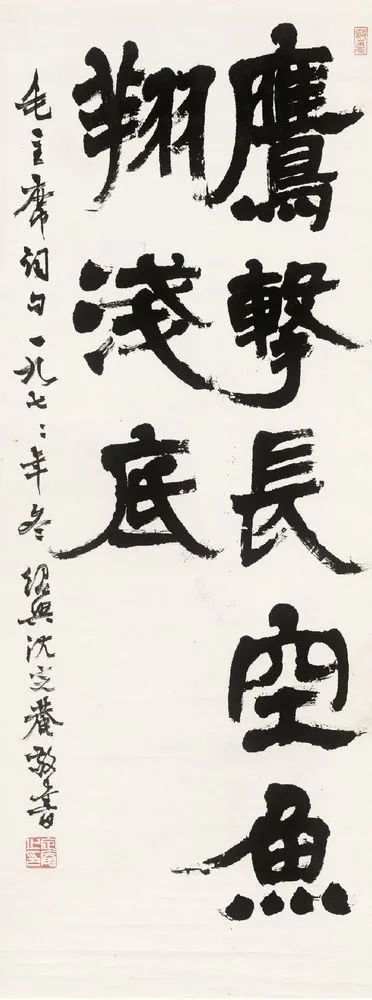 鷹擊長空魚
翔淺底
毛主席詞句一九七二年冬紹興沈定菴敬書